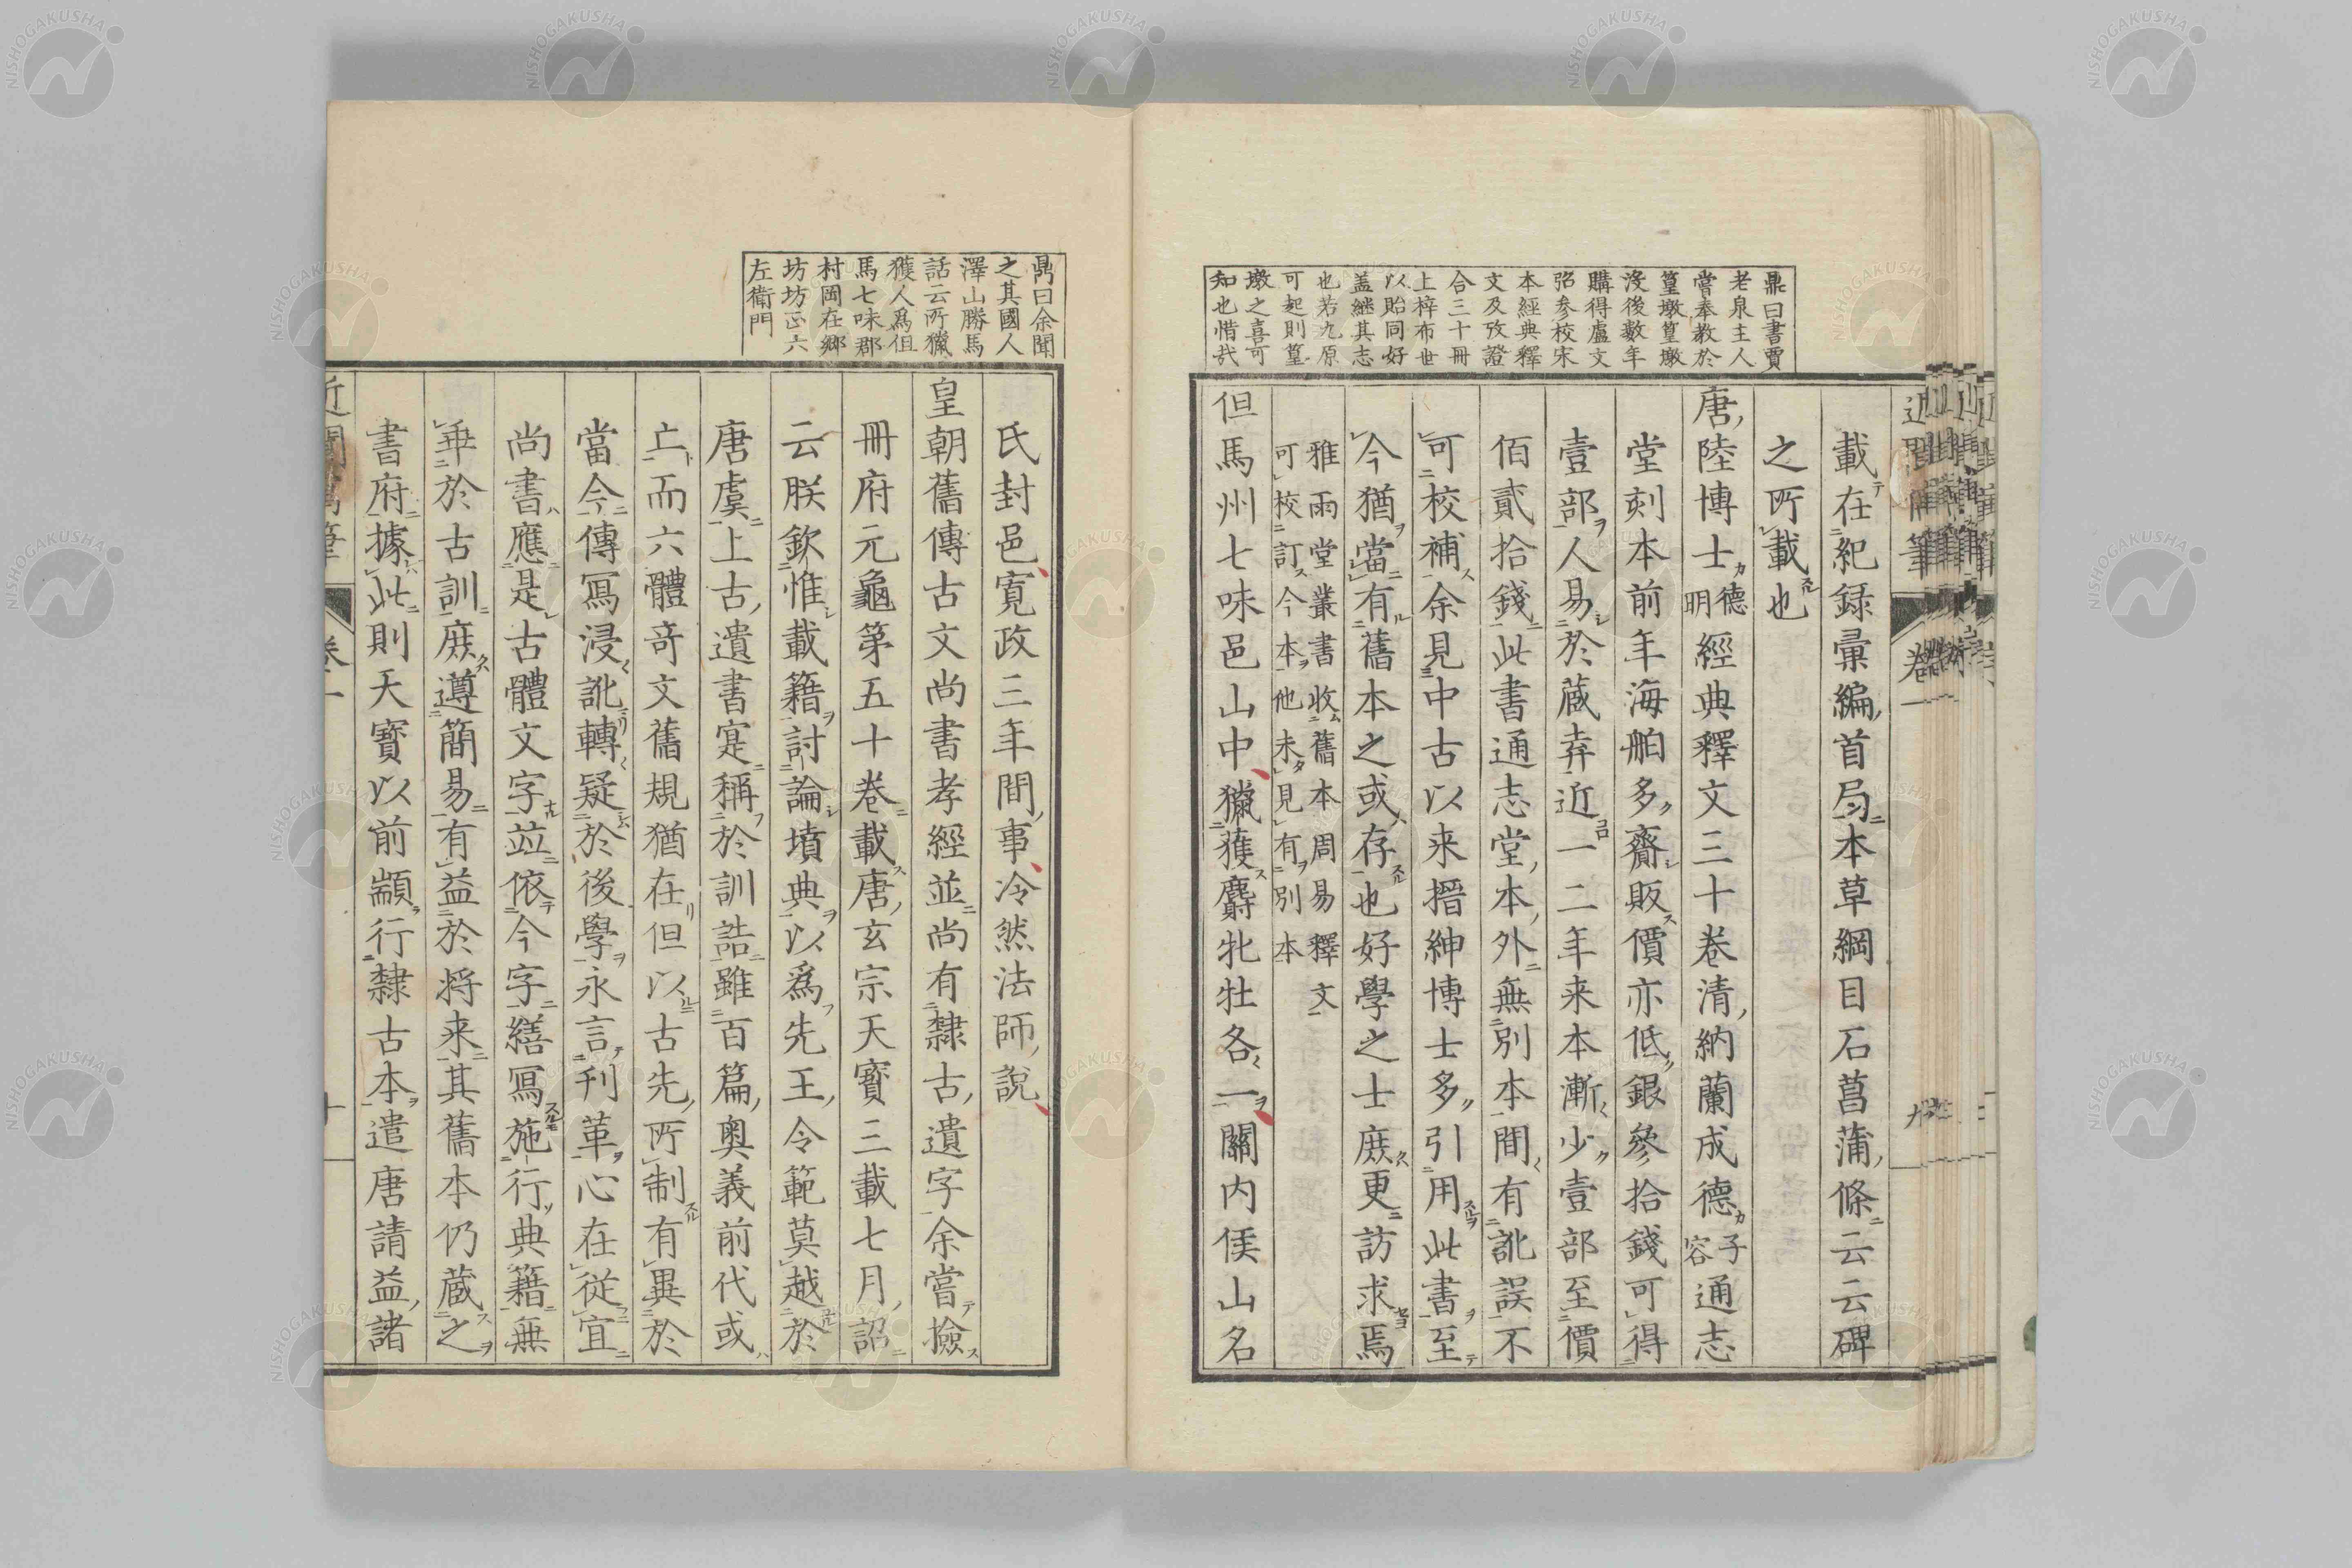 鼎曰書賈
老泉主人
嘗奉教於
篁墩篁墩
沒後數年
購得盧文
弨參校宋
本經典釋
文及攷證
合三十冊
上梓布世
以貽同好
蓋継其志
也若九原
可起則篁
墩之喜可
知也惜哉
載在紀録彙編首局本草綱目石菖蒲條云云碑
之所載也
唐陸博士德明經典釋文三十卷清納蘭成德容子通志
堂刻本前年海舶多齎販價亦低銀參拾錢可得
壹部人易於蔵弆近一二年来本漸少壹部至價
佰貳拾錢此書通志堂本外無別本間有訛誤不
可校補余見中古以来搢紳博士多引用此書至
今猶當有舊本之或存也好學之士庶更訪求焉
雅雨堂叢書收舊本周易釋文
可校訂今本他未見有別本
但馬州七味邑山中獵獲麝牝牡各一關内侯山名
近聞寓筆
卷一
九
鼎曰余聞
之其國人
澤山勝馬
話云所獵
獲人爲但
馬七味郡
村岡在郷
坊坊正六
左衛門
氏封邑寛政三年間事冷然法師說
皇朝舊傳古文尚書孝經並尚有隸古遺字余嘗撿
冊府元龜第五十卷載唐玄宗天寳三載七月詔
云朕欽惟載籍討論墳典以爲先王令範莫越於
唐虞上古遺書寔稱於訓誥雖百篇奥義前代或
亡而六體奇文舊規猶在但以古先所制有異於
當今傳冩浸訛轉疑於後學永言刊革心在從宜
尚書應是古體文字竝依今字繕冩施行典籍無
乖於古訓庶遵簡易有益於将来其舊本仍蔵之
書府據此則天寳以前顓行隸古本遣唐請益諸
近聞寓筆
卷一
十